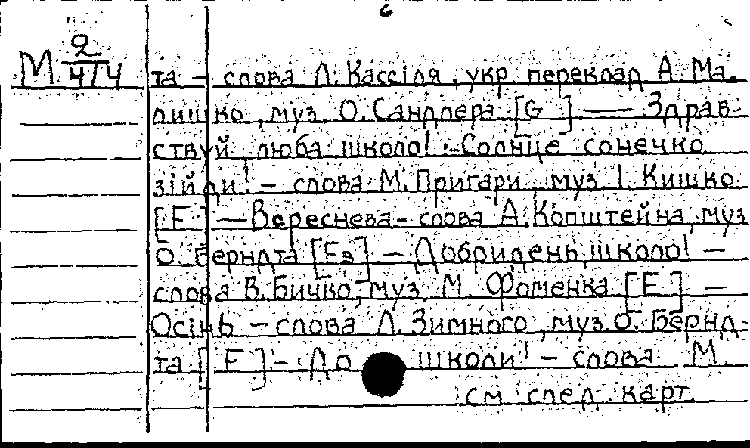 6
М 2/474
та – слова Л. Кассіля, укр. переклад А. Ма-
лишко, муз. О. Сандлера [G ] — Здрав-
ствуй, люба школо! – Солнце сонечко
зійди! – слова М. Пригари, муз. І. Кишко
[F ] – Вереснева – слова А. Копштейна, муз
О. Берндта [Es] – Добридень, школо! –
слова В. Бичко, муз. М. Фоменка [F ] –
Осінь – слова Л. Зимного, муз. О. Бернд-
та [ F ] – До школи! – слова М.
см. след. карт.